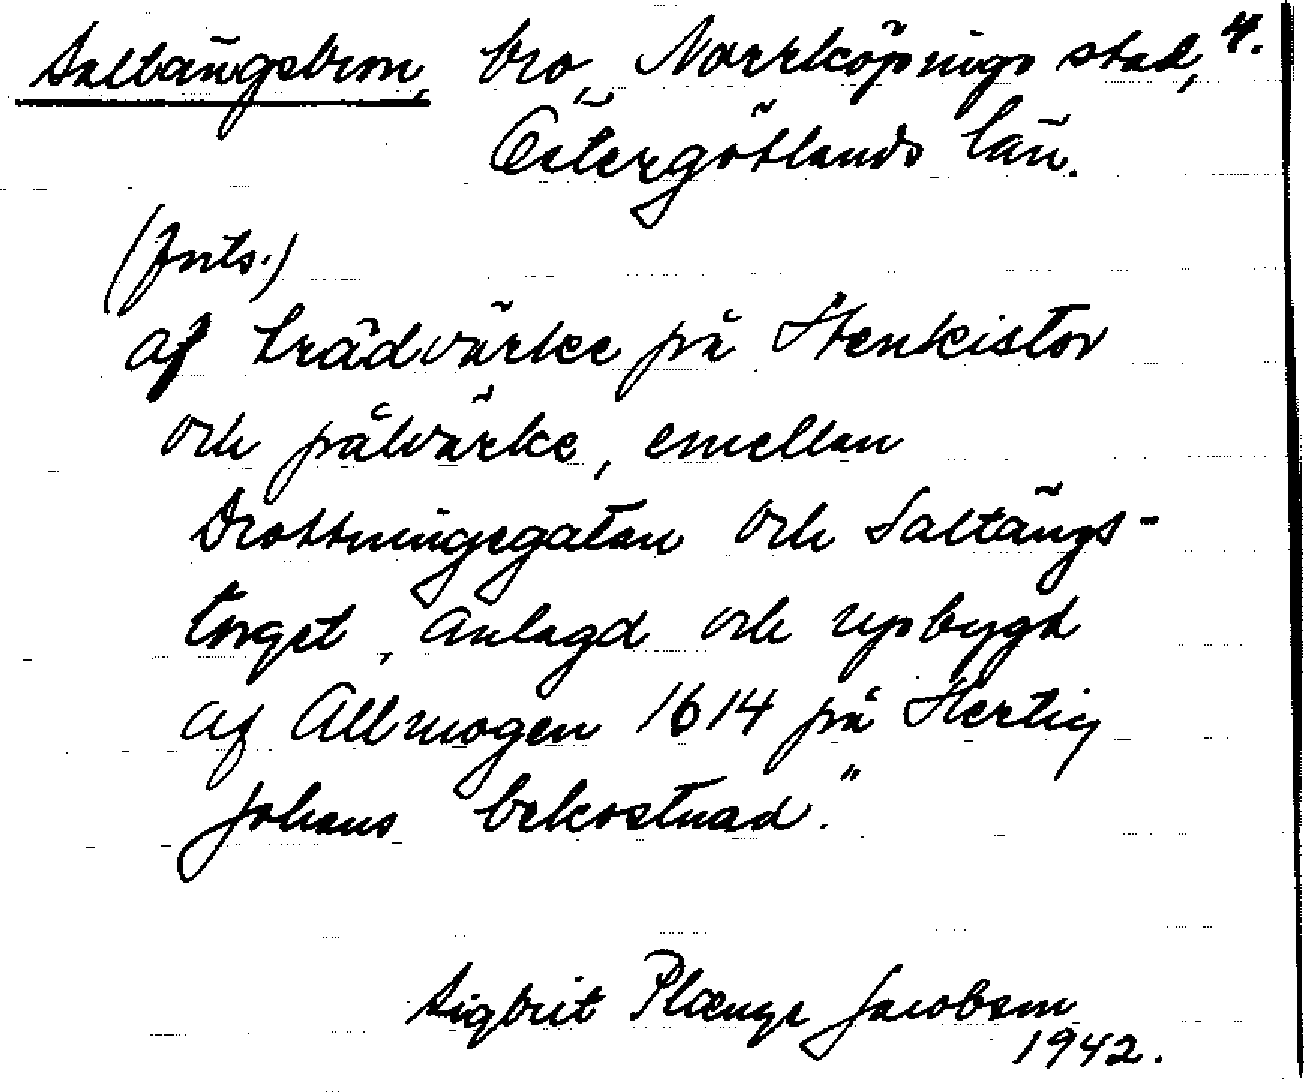 Saltängsbron, bro, Norrköpings stad, 4.
Östergötlands län.
(forts.)
af trädvärke på Stenkistor
och pålvärke, emellan
Drottningegatan och Saltängs-
torget, anlagd och upbygd
af Allmogen 1614 på Hertig
Johans bekostnad."
Sigbrit Plænge Jacobson
1942.